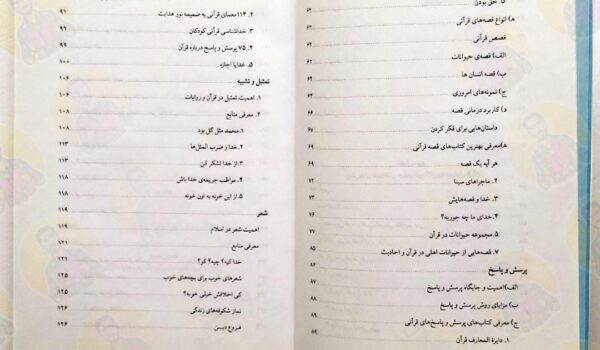 ۵. حق بودن
ه) انواع قصه‌های قرآنی ۶۲
قصص قرآنی
الف) قصه‌ی حیوانات ۶۲
ب) قصه انسان ها ۶۴
ج) نمونه‌های امروزی ۶۴
د) کاربرد درمانی قصه ۶۶
داستان‌هایی برای فکر کردن ۶۷
ه)معرفی بهترین کتاب‌های قصه قرآنی ۶۹
هر آیه یک قصه
۲. ماجراهای سینا
۳. خدا و قصه‌هایش ۷۳
۴. خدای ما چه جوریه؟ ۷۶
۵. مجموعه حیوانات در قرآن
۷. قصه‌هایی از حیوانات اهلی در قرآن و احادیث ۸۵
پرسش و پاسخ ۸۶
الف)اهمیت و جایگاه پرسش و پاسخ ۸۷
ب) مزایای روش پرسش و پاسخ
ج) معرفی کتاب‌های پرسش و پاسخ‌های قرآنی
۱. دایرة المعارف قرآن ۸۹
۲. ۱۱۴ معمای قرآنی به ضمیمه نور هدایت ۹۱
۳. خداشناسی قرآنی کودکان
۴. ۷۵ پرسش و پاسخ درباره قرآن ۹۹
۵. خدایا اجازه ۱۰۰
تمثیل و تشبیه ۱۰۶
۱. اهمیت تمثیل در قرآن و روایات ۱۰۶
۲. معرفی منابع ۱۰۸
۱.محمد مثل گل بود ۱۰۸
۲. خدا و ضرب المثل‌ها ۱۱۳
۳.از خدا تشکر کن ۱۱۳
۴. مواظب جریمه‌ی خدا باش ۱۱۸
۵.از این خونه به اون خونه ۱۱۸
شعر ۱۱۹
اهمیت شعر در اسلام ۱۱۹
معرفی منابع ۱۲۱
خدا کیه؟ چیه؟ کو؟ ۱۲۱
شعرهای خوب برای بچه‌های خوب ۱۲۵
کی اخلاقش خیلی خوبه؟ ۱۲۵
نماز شکوفه‌های زندگی ۱۲۶
فروع دیـن ۱۲۶